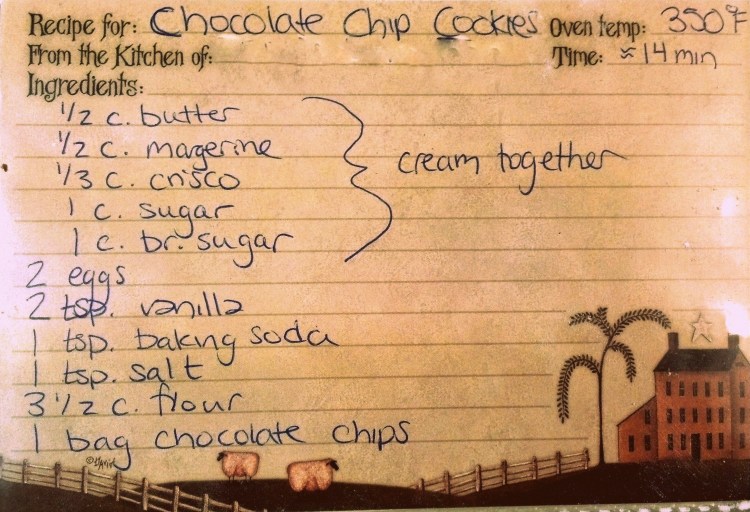 Recipe for: Chocolate Chip Cookies Oven temp: 350°F
From the Kitchen of: Time: ≈ 14 min
Ingredients:
1/2 c. butter
1/2 c. magerine
1/3 c. crisco
cream together
1 c. sugar
1 c. br. sugar
2 eggs
2 tsp. vanilla
1 tsp. baking soda
1 tsp. salt
3 1/2 c. flour
1 bag chocolate chips